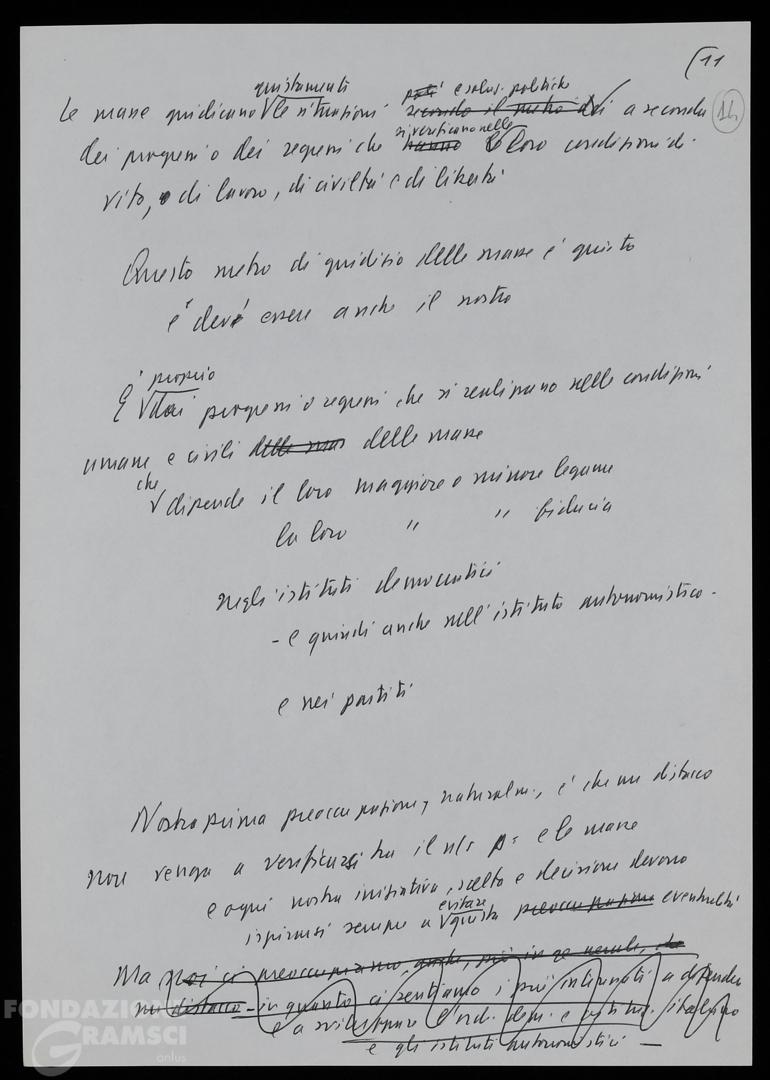 11
14
giustamente e soluz. politiche
Le masse giudicano le situazioni secondo il metro dei a seconda
si verificano nelle
dei progressi o dei regressi che hanno le loro condizioni di
vita, di lavoro, di civiltà e di libertà
Questo metro di giudizio delle masse è giusto
e deve essere anche il nostro
proprio
È dai progressi o regressi che si realizzano nelle condizioni
umane e civili delle mas delle masse
che
dipende il loro maggiore o minore legame
la loro " " fiducia
negli istituti democratici
- e quindi anche nell'istituto autonomistico -
e nei partiti
Nostra prima preoccupazione, naturalm., è che un distacco
non venga a verificarsi tra il n/s p. e le masse
e ogni nostra iniziativa, scelta e decisione devono
evitare
ispirarsi sempre a questa preoccupazione eventualità
Ma noi ci preoccupiamo, anche, più in generale, che
un distacco - in quanto ci sentiamo i più interessati a difendere
e a sviluppare l'ord. dem. e costituz. italiano
e gli istituti autonomistici -
FONDAZIONE
GRAMSCI
onlus